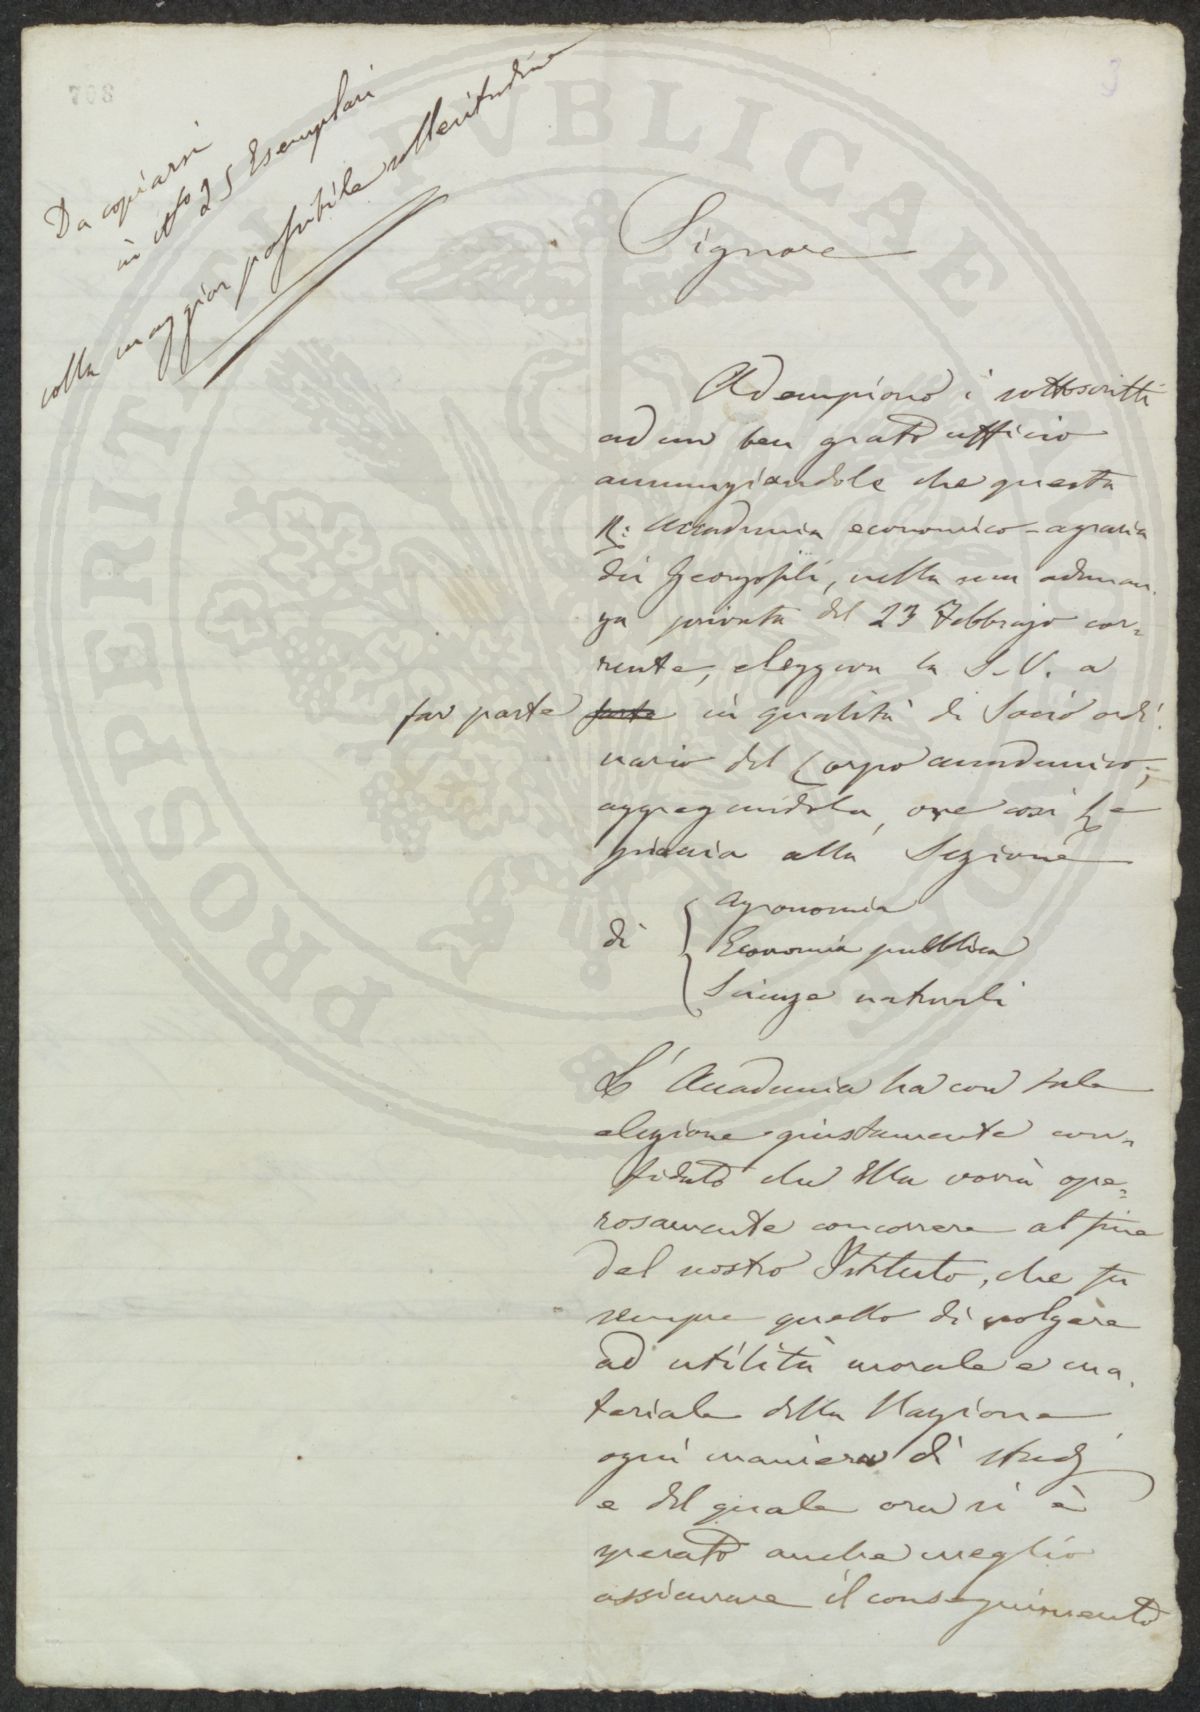 708
3
Da copiarsi
in No 25 Esemplari
colla maggior possibile sollecitudine
Signore
Adempiono i sottoscritti
ad un ben grato ufficio
annunziandole che questa
R: Accademia economico-agraria
dei Georgofili, nella sua adunan-
za privata del 23 Febbrajo cor-
rente, eleggeva la S.V. a
far parte parte in qualità di Socio ordi-
nario del Corpo accademico;
aggregandola, ove così Le
piaccia alla Sezione
di
Agronomia
Economia pubblica
Scienze naturali
L'Accademia ha con tale
elezione giustamente con-
fidato che Ella vorrà ope-
rosamente concorrere al fine
del nostro Istituto, che fu
sempre quello di volgere
ad utilità morale e ma-
teriale della Nazione
ogni maniera di studj
e del quale ora si è
sperato anche meglio
assicurare il conseguimento
PROSPERITATI PUBLICAE